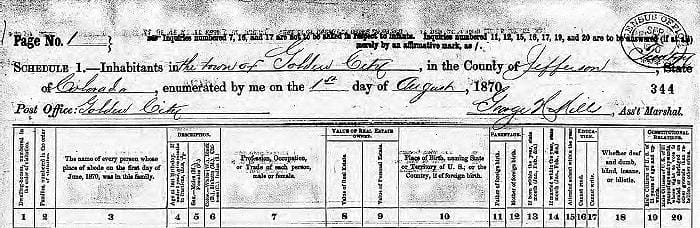 Page No. 1
Inquiries numbered 7, 16, and 17 are not to be asked in respect to infants. Inquiries numbered 11, 12, 15, 16, 17, 19, and 20 are to be answered (if at all)
merely by an affirmative mark, as /.
CENSUS OFFICE
SEP
SCHEDULE 1.—Inhabitants in the town of Golden City, in the County of Jefferson, State
of Colorado, enumerated by me on the 1st day of August, 1870.
344
Post Office: Golden City
George Mills, Ass't Marshal.
Dwelling-houses, numbered in the order of visitation.
Families, numbered in the order of visitation.
The name of every person whose place of abode on the first day of June, 1870, was in this family.
DESCRIPTION.
Profession, Occupation, or Trade of each person, male or female.
VALUE OF REAL ESTATE OWNED.
Value of Real Estate.
Value of Personal Estate.
Place of Birth, naming State or Territory of U. S.; or the Country, if of foreign birth.
PARENTAGE.
Father of foreign birth.
Mother of foreign birth.
EDUCATION.
Attended school within the year.
Cannot read.
Cannot write.
Whether deaf and dumb, blind, insane, or idiotic.
CONSTITUTIONAL RELATIONS.
1 2 3 4 5 6 7 8 9 10 11 12 13 14 15 16 17 18 19 20